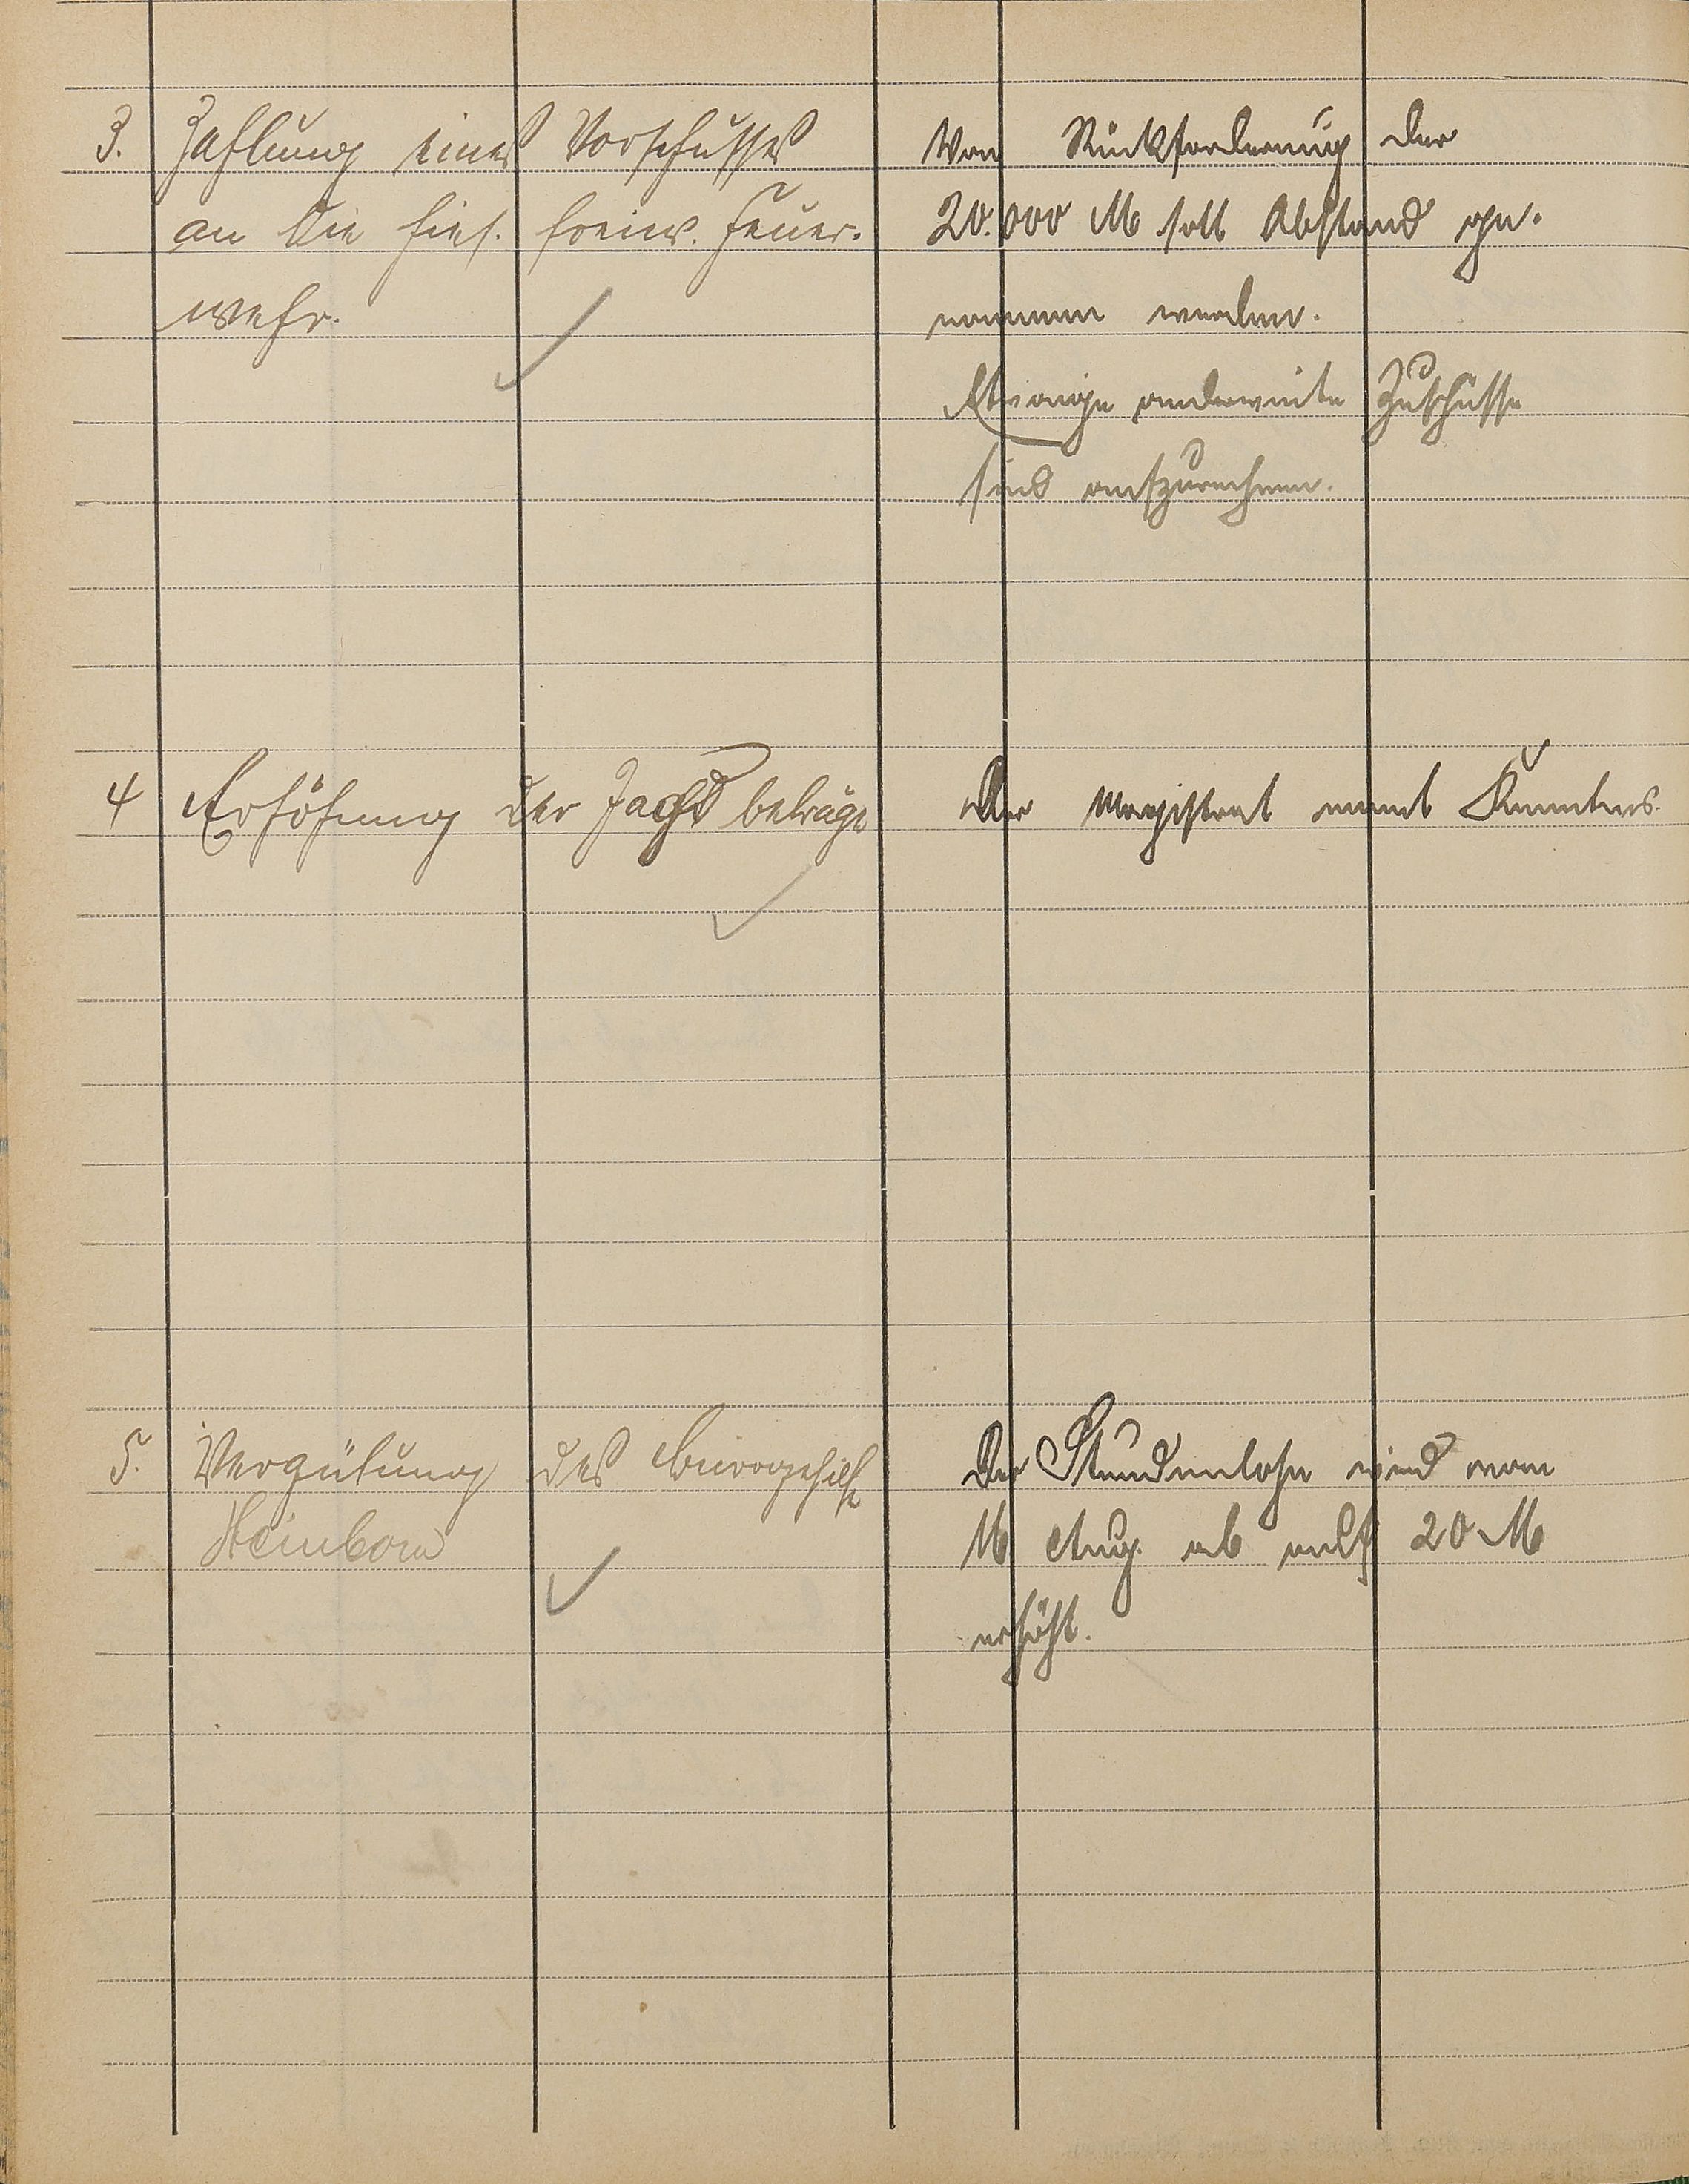 3. Zahlung eines Vorschusses
an die hies. freiw. Feuer-
wehr.
Von Rückforderung der
20.000 M soll Abstand ge-
nommen werden.
Etwaige anderweite Zuschüsse
sind aufzurechnen.
4 Erhöhung der Jagdbeträge
Der Magistrat nimmt Kenntnis.
5. Vergütung des Bürogehilfe
Heinborn
Der Stundenlohn wird vom
16 Aug. ab auf 20 M
erhöht.